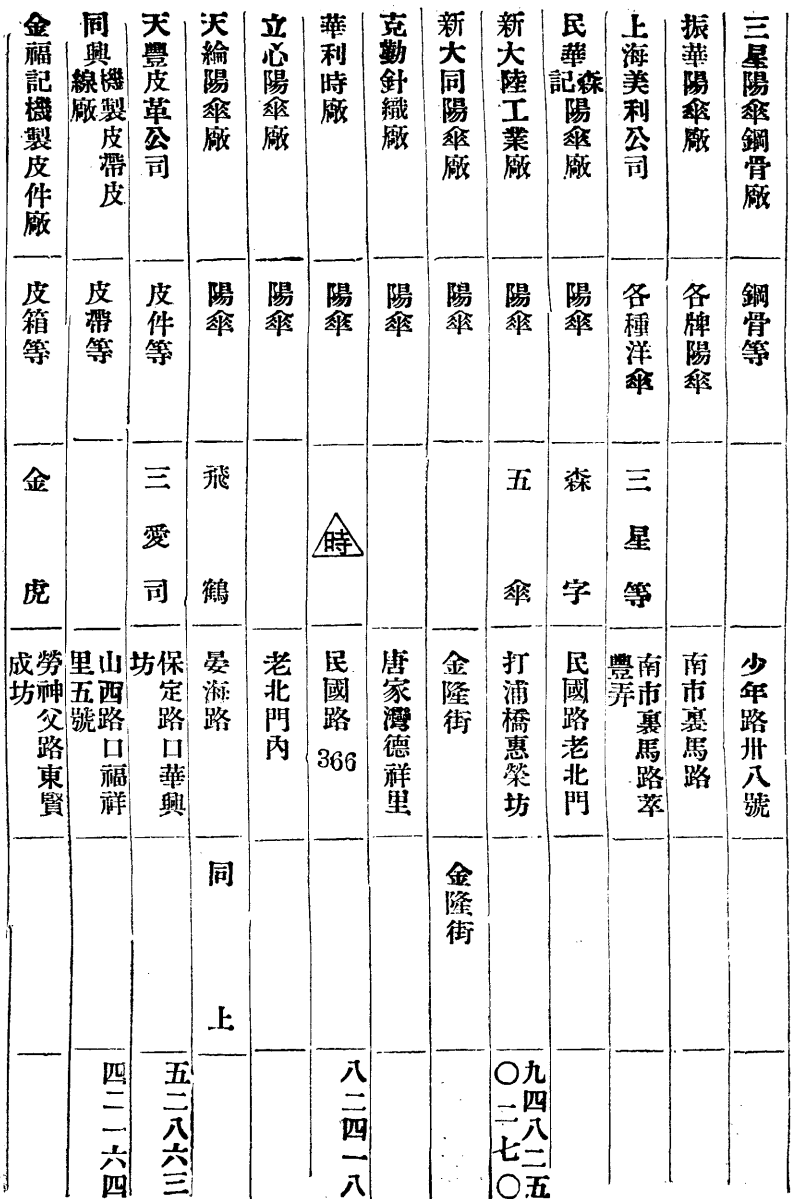 三星陽傘鋼骨廠 鋼骨等 少年路卅八號
振華陽傘廠 各牌陽傘 南市裏馬路
上海美利公司 各種洋傘 三星等 南市裏馬路萃豐弄
民華森記陽傘廠 陽傘 森字 民國路老北門
新大陸工業廠 陽傘 五傘 打浦橋惠榮坊 九四八二五 〇二七〇
新大同陽傘廠 陽傘 金隆街 金隆街
克勤針織廠 陽傘 唐家灣德祥里
華利時廠 陽傘 時 民國路366 八二四一八
立心陽傘廠 陽傘 老北門內
天綸陽傘廠 陽傘 飛鶴 晏海路 同上
天豐皮革公司 皮件等 三愛司 保定路口華興坊 五二八六三
同興機製皮帶皮線廠 皮帶等 山西路口福祥里五號 四二一六四
金福記機製皮件廠 皮箱等 金虎 勞神父路東賢成坊